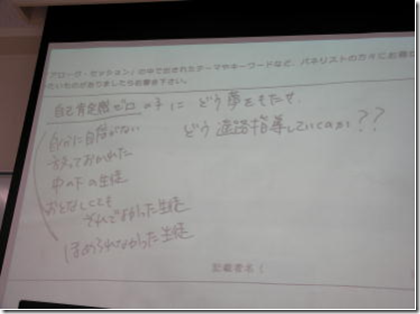 アローグ・セッション」の中で出されたテーマやキーワードなど、パネリストの方々にお聞
たいものがありましたらお書き下さい。
自己肯定感ゼロの子に どう夢をもたせ、
どう進路指導していくのか??
自分に自信がない
中の下の生徒
おとなしくても
それでよかった生徒
ほめられなかった生徒
記載者名(